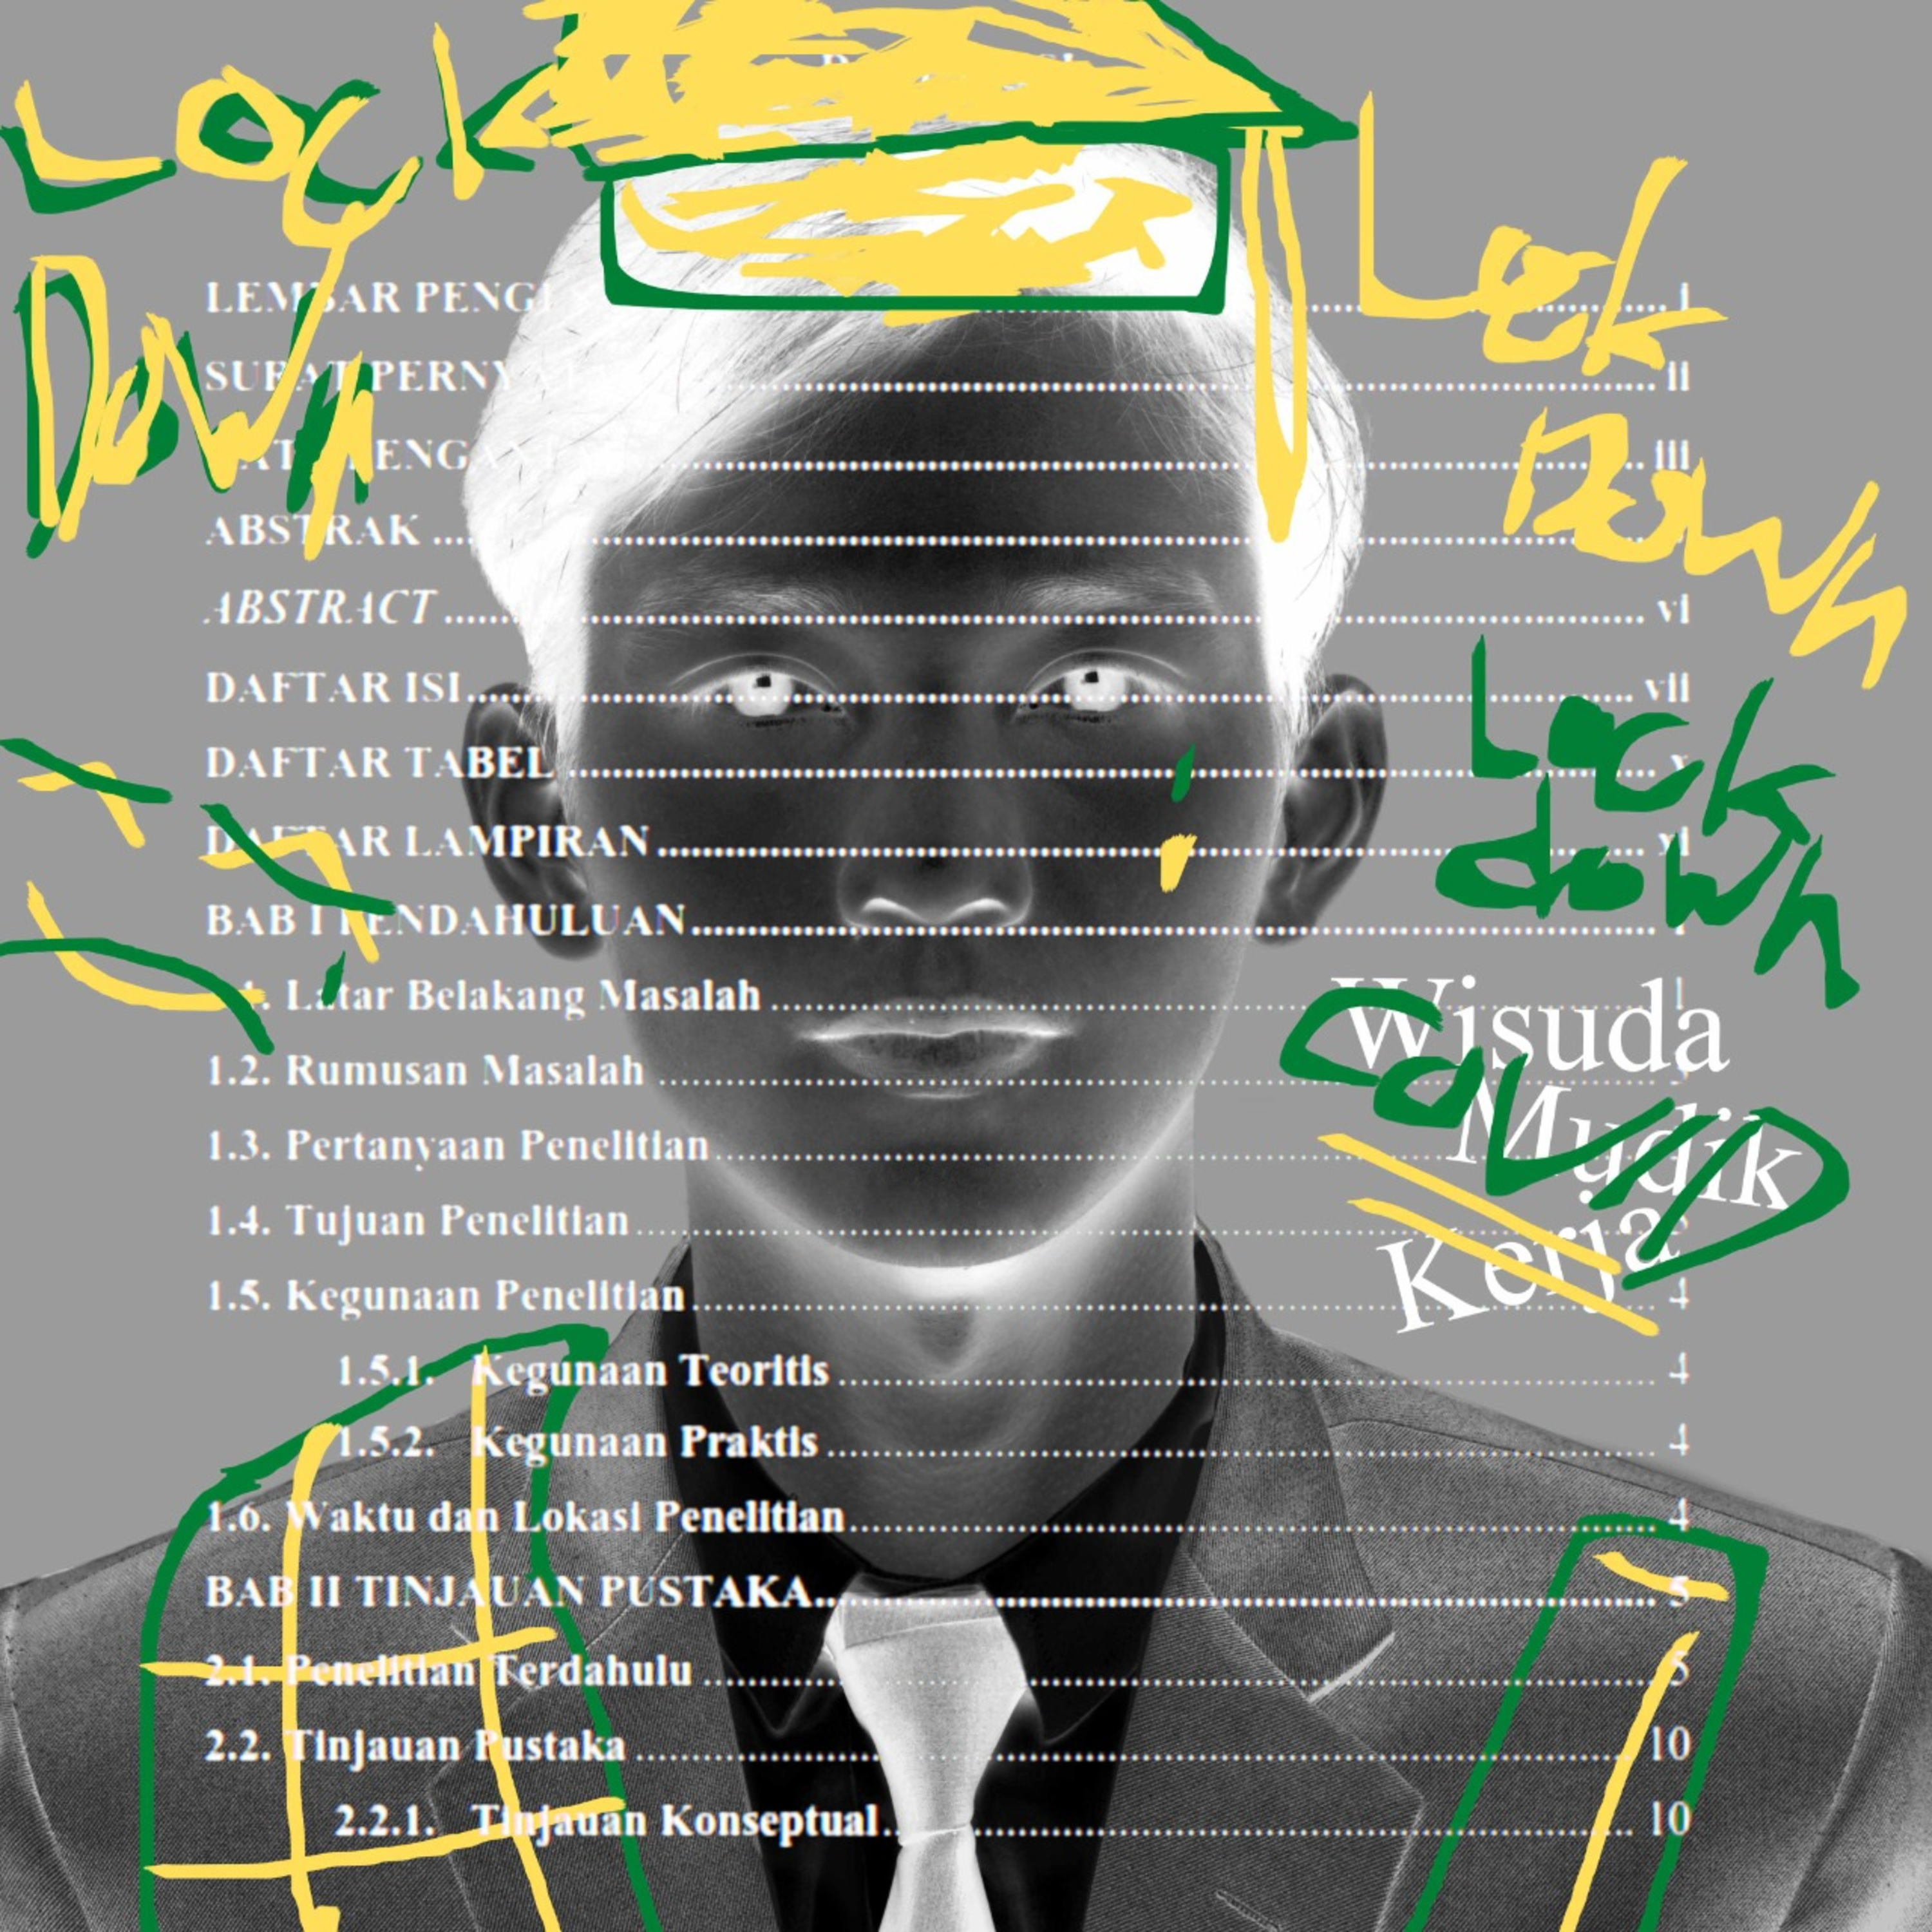 Lock
Down
Lock
Down
Lock
down
COVID
Wisuda
Mudik
Kerja
LEMBAR PENG
SURAT PERNYATA ii
iii
ABSTRAK
ABSTRACT vi
DAFTAR ISI vii
DAFTAR TABEL x
DAFTAR LAMPIRAN xi
BAB I PENDAHULUAN 1
1.1. Latar Belakang Masalah 1
1.2. Rumusan Masalah
1.3. Pertanyaan Penelitian
1.4. Tujuan Penelitian
1.5. Kegunaan Penelitian 4
1.5.1. Kegunaan Teoritis 4
1.5.2. Kegunaan Praktis 4
1.6. Waktu dan Lokasi Penelitian 4
BAB II TINJAUAN PUSTAKA 5
2.1. Penelitian Terdahulu 5
2.2. Tinjauan Pustaka 10
2.2.1. Tinjauan Konseptual 10